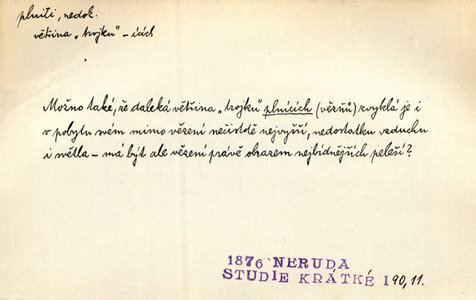 plniti, nedok.
většina „trojku" – ících
Možno také, že daleká většina „trojku" plnících (vězňů) zvyklá je i
v pobytu svém mimo vězení nečistotě nejvyšší, nedostatku vzduchu
i světla – má být ale vězení právě obrazem nejbídnějších pelechů?
1876 NERUDA
STUDIE KRÁTKÉ I 90,11.